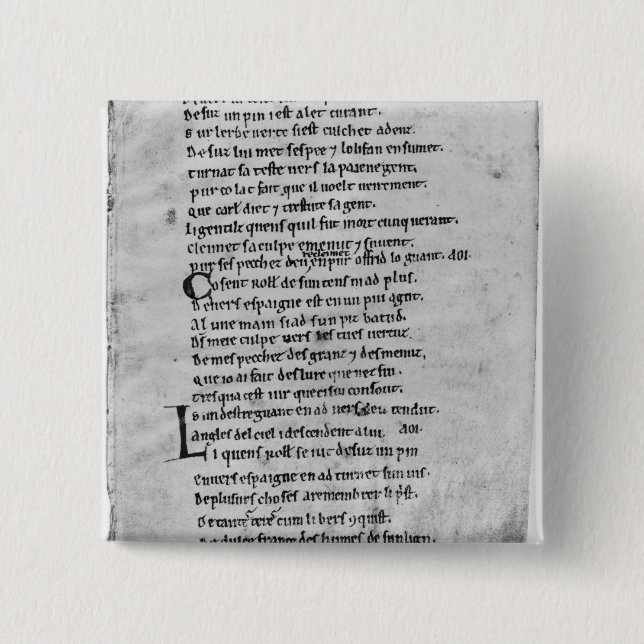 Desuz un pin iest alet curant.
Sur lerbe verte siest culchet adenz.
Desuz lui met sespee ⁊ lolifan ensumet.
Turnat sa teste vers la paienegent.
Pur co lat fait que il voelt veirement.
Que carl diet ⁊ trestute sa gent.
Li gentilz quens quil fut mort cunquerant.
Cleimet sa culpe e menut ⁊ suvent.
Pur ses pecchez deu recleimet en pur offrid lo guant. AOI.
Co sent Roll̃. de sun tens ni ad plus.
Devers espaigne est en un pui agut.
A lune main si ad sun piz batud.
Ds̃ meie culpe vers les tues vertuz.
De mes pecchez des granz ⁊ des menuz.
Que io ai fait des lure que nez fui.
Tresqua cest iur que ci sui consout.
Sun destre guant en ad vers deu tendut.
Angles del ciel i descendent a lui. AOI.
Li quens Roll̃. se iut desuz un pin
envers espaigne en ad turnet sun vis.
De plusurs choses a remembrer li prist.
De tantes teres cum li bers ↄquist.
De dulce france des humes de sun lign.